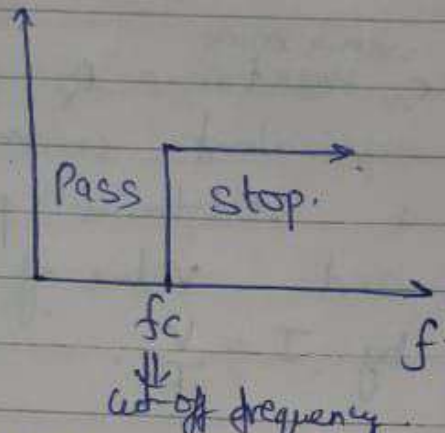 Pass stop.
fc
f
cut-off frequency.